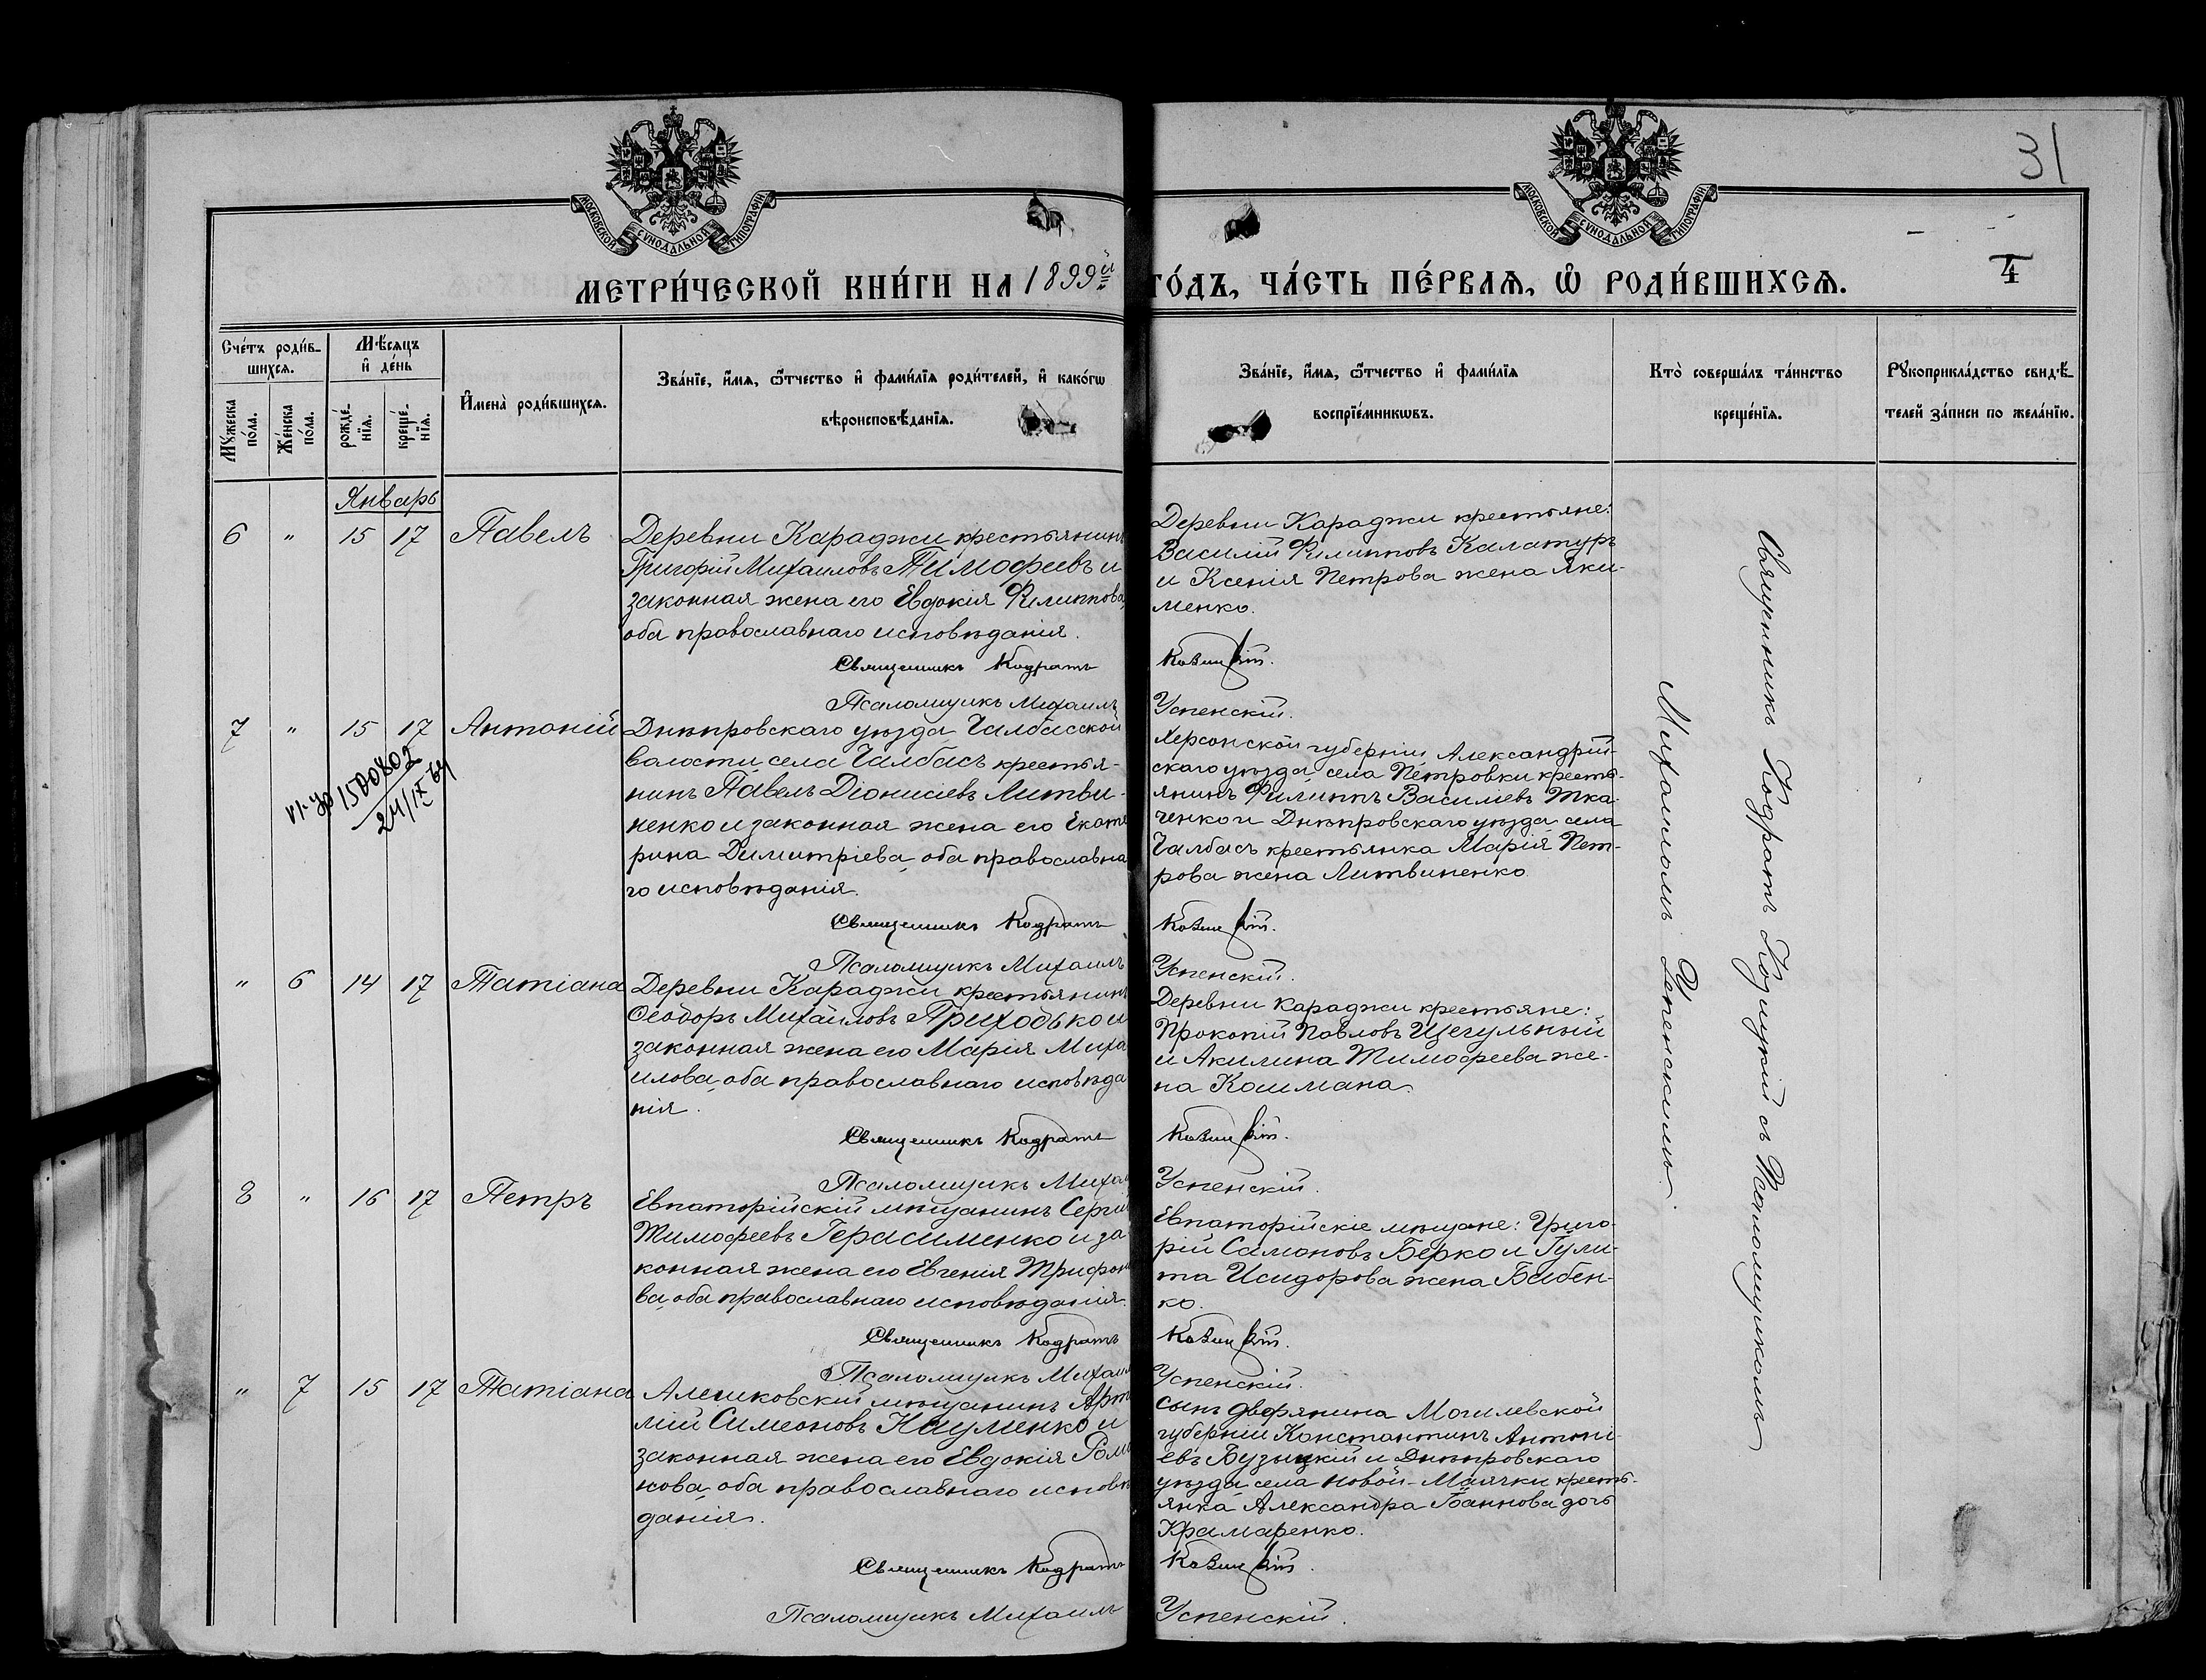 31
МОСКОВСКОЙ СѴНОДАЛЬНОЙ ТИПОГРАФІИ
МОСКОВСКОЙ СѴНОДАЛЬНОЙ ТИПОГРАФІИ
МЕТРИ́ЧЕСКОЙ КНИ́ГИ НА 1899й
ГО́ДЪ, ЧА́СТЬ ПЕ́РВАЯ, Ѡ҆ РОДИ́ВШИХСЯ.
4
Сче́тъ роди́в-
шихся.
Мꙋ́жеска по́ла.
Же́нска по́ла.
Мѣ́сяцъ
и҆ де́нь
рожде́-
нїя.
креще́-
нїя.
И҆мена̀ роди́вшихся.
Зва́нїе, и҆́мя, ѻ҆́тчество и҆ фами́лїя роди́телей, и҆ како́гѡ
вѣроисповѣ́данїя.
Зва́нїе, и҆́мя, ѻ҆́тчество и҆ фами́лїя
воспрїе́мникѡвъ.
Кто̀ соверша́лъ та́инство
креще́нїя.
Рꙋкоприкла́дство свидѣ́-
телей за́писи по жела́нїю.
Январь
6 " 15 17 Павелъ
Деревни Караджи крестьянинъ
Григорій Михаиловъ Тимофеевъ и
законная жена его Евдокія Филиппова,
оба православнаго исповѣданія.
Священникъ Кодратъ
Псаломщикъ Михаилъ
Деревни Караджи крестьяне:
Василій Филипповъ Калатуръ
и Ксенія Петрова жена Яки-
менко.
Козицкій.
Успенскій.
7 " 15 17 Антоній
1500802
24/IX 64
Днѣпровскаго уѣзда Чалбасской
волости села Чалбасъ крестья-
нинъ Павелъ Діонисіевъ Литви-
ненко и законная жена его Екате
рина Димитріева, оба православна
го исповѣданія.
Священникъ Кодратъ
Псаломщикъ Михаилъ
Херсонской губерніи, Александрій-
скаго уѣзда, села Петровки кресть-
янинъ Филиппъ Василіевъ Тка-
ченко и Днѣпровскаго уѣзда села
Чалбасъ крестьянка Марія Пет-
рова жена Литвиненко.
Козицкій.
Успенскій.
" 6 14 17 Татіана
Деревни Караджи крестьянинъ
Ѳеодоръ Михаиловъ Приходько и
законная жена его Марія Миха
илова, оба православнаго исповѣда
нія.
Священникъ Кодратъ
Псаломщикъ Михаи
Деревни Караджи крестьяне:
Прокопій Павловъ Щегульный
и Акилина Тимофеева же-
на Кошмана.
Козицкій.
Успенскій.
8 " 16 17 Петръ
Евпаторійскій мѣщанинъ Сергій
Тимофеевъ Герасименко и за
конная жена его Евгенія Трифоно
ва, оба православнаго исповѣданія.
Священникъ Кодратъ
Псаломщикъ Михаил
Евпаторійскіе мѣщане: Григо-
рій Симоновъ Берко и Гули-
та Исидорова жена Бабен-
ко.
Козицкій.
Успенскій.
" 7 15 17 Татіана
Алешковскій мѣщанинъ Арте
мій Симеоновъ Науменко и
законная жена его Евдокія Рома
нова, оба православнаго исповѣ
данія.
Священникъ Кодратъ
Псаломщикъ Михаилъ
Сынъ дворянина Могилевской
губерніи Константинъ Антоні-
евъ Бузицкій и Днѣпровскаго
уѣзда села Новой-Маячки кресть-
янка Александра Іоаннова дочь
Крамаренко.
Козицкій.
Успенскій.
Священникъ Кодратъ Козицкій съ Псаломщикомъ
Михаиломъ Успенскимъ.